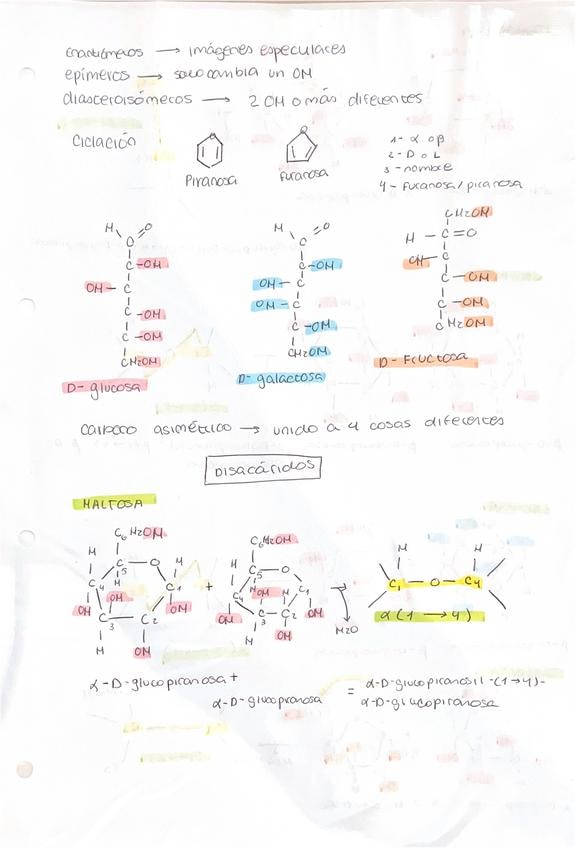 enantiómeros → imágenes especulares
epímeros → solo cambia un OH
diasteroisómeros → 2 OH o más diferentes
Ciclación
Piranosa
Furanosa
1- α o β
2- D o L
3 - nombre
4 - furanosa/piranosa
H O
C
C-OH
OH-C
C-OH
C-OH
CH2OH
D-glucosa
H O
C
C-OH
OH-C
OH-C
C-OH
CH2OH
D-galactosa
CH2OH
H - C=O
OH-C
C-OH
C-OH
CH2OH
D-Fructosa
carbono asimétrico → unido a 4 cosas diferentes
DISACÁRIDOS
MALTOSA
C6H2OH
H C5 O H
C4 H C1
OH OH OH
C3 C2
H OH
+
C6H2OH
H C5 O
C4 H OH C1
OH C3 C2 OH
H OH
→
H2O
H H
C1 - O - C4
α(1→4)
α-D-glucopiranosa +
α-D-glucopiranosa
= α-D-glucopiranosil-(1→4)-
α-D-glucopiranosa